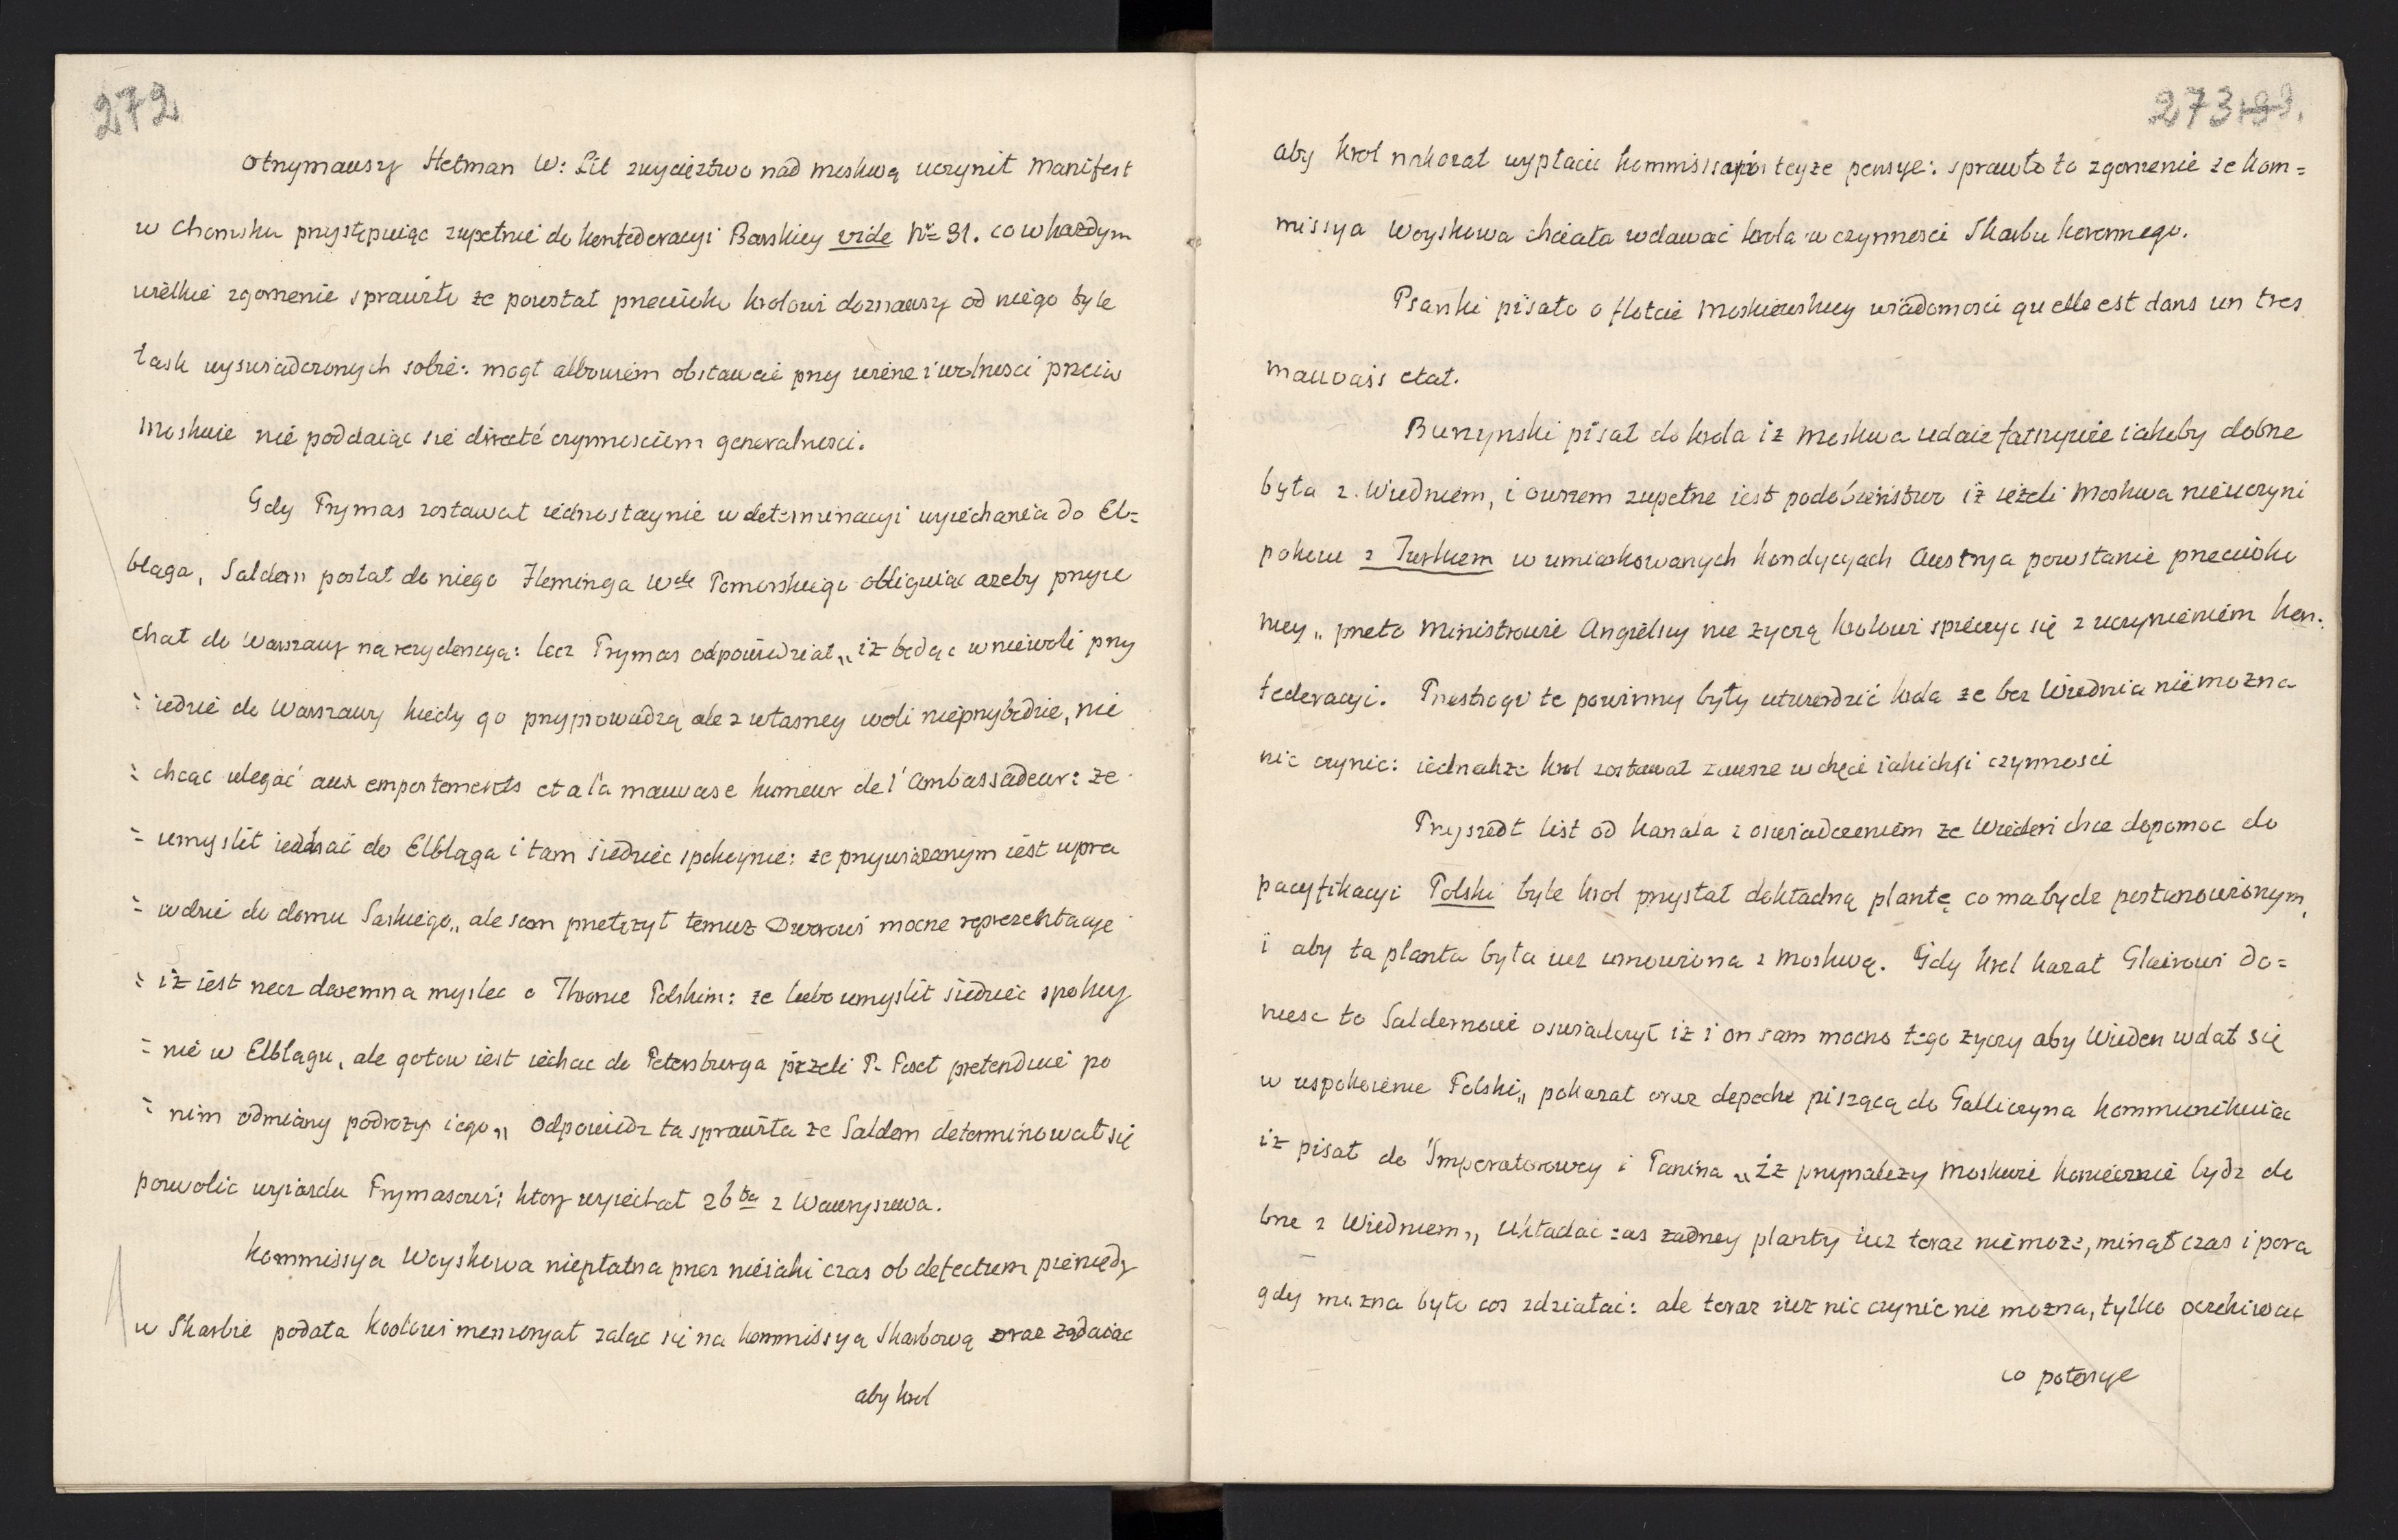 272
otrzymawszy Hetman W: Lit zwycięztwo nad moskwą uczynił manifest
w chomsku przystępuiąc zupełnie do konfederacyi Barskiey vide Nro 31. co w każdym
wielkie zgorszenie sprawiło ze powstał przeciwko krolowi doznawszy od niego tyle
łask wyswiadczonych sobie: mogł albowiem obstawać przy wierze i wolnosci przeciw
moskwie nie poddaiąc sie directé czynnosciom generalnosci.
Gdy Prymas zostawał iednostaynie w determinacyi wyiechania do El=
bląga, Saldern posłał do niego Fleminga Wdę Pomorskiego obliguiąc azeby przyie
chał do Warszawy na rezydencyą: lecz Prymas odpowiedział „ iz będąc w niewoli przy
= iedzie do Warszawy kiedy go przyprowadzą ale z własney woli nieprzybędzie, nie
= chcąc ulegać aux emportements et a la mauvaise humeur de l'ambassadeur: ze
= umyslił iechać do Elbląga i tam siedziec spokoynie: ze przywiązanym iest wpra
= wdzie do domu Saskiego „ ale sam przełozył temuz Dworowi mocne reprezentacye
= iz iest rzecz daremna myslec o Thronie Polskim: ze lubo umyslił siedziec spokoy
= nie w Elblągu, ale gotow iest iechac do Petersburga iezeli P. Poseł pretenduie po
= nim odmiany podrozy iego „ odpowiedz ta sprawiła ze Saldern determinował się
pozwolic wyiazdu Prymasowi; ktory wyiechał 26ta z Wawrzyszewa.
Kommissya Woyskowa niepłatna przez nieiaki czas ob defectum pieniędzy
w Skarbie podała krolowi memoryał zaląc się na kommissyą Skarbową oraz ządaiąc
aby krol
273 199.
aby krol nakazał wypłacic kommissarzom teyze pensye: sprawiło to zgorszenie ze kom=
missya Woyskowa chciała wdawać krola w czynnosci Skarbu koronnego.
Psarski pisał o flotcie moskiewskiey wiadomosci qu elle est dans un tres
mauvais etat.
Burzynski pisał do krola iz moskwa udaie fałszywie iakoby dobrze
była z Wiedniem, i owszem zupełne iest podobieństwo iz iezeli moskwa nieuczyni
pokoiu z Turkiem w umiarkowanych kondycyach Austrya powstanie przeciwko
niey „ przeto ministrowie Angielscy nie zyczą krolowi spieczyc się z uczynieniem kon=
federacyi. Przestrogi te powinny były utwierdzić krola ze bez Wiednia niemozna
nic czynic: iednakze krol zostawał zawsze w chęci iakichsi czynnosci
Przyszedł list od kanala z oswiadczeniem ze Wieden chce dopomoc do
pacyfikacyi Polski byle krol przystał dokładną plantę co ma bydz postanowionym,
i aby ta planta była iuz umowiona z moskwą. Gdy krol kazał Glairowi do=
niesc to Saldernowi oswiadczył iz i on sam mocno tego zyczy aby Wieden wdał się
w uspokoienie Polski „ pokazał oraz depeche piszącą do Galliczyna kommunikuiąc
iz pisał do Imperatorowey i Panina „ iz przynalezy moskwie koniecznie bydz do
brze z Wiedniem „ układać zas zadney planty iuz teraz niemoze, minął czas i pora
gdy mozna było cos zdziałać: ale teraz iuz nic czynic nie mozna, tylko oczekiwac
co potencye